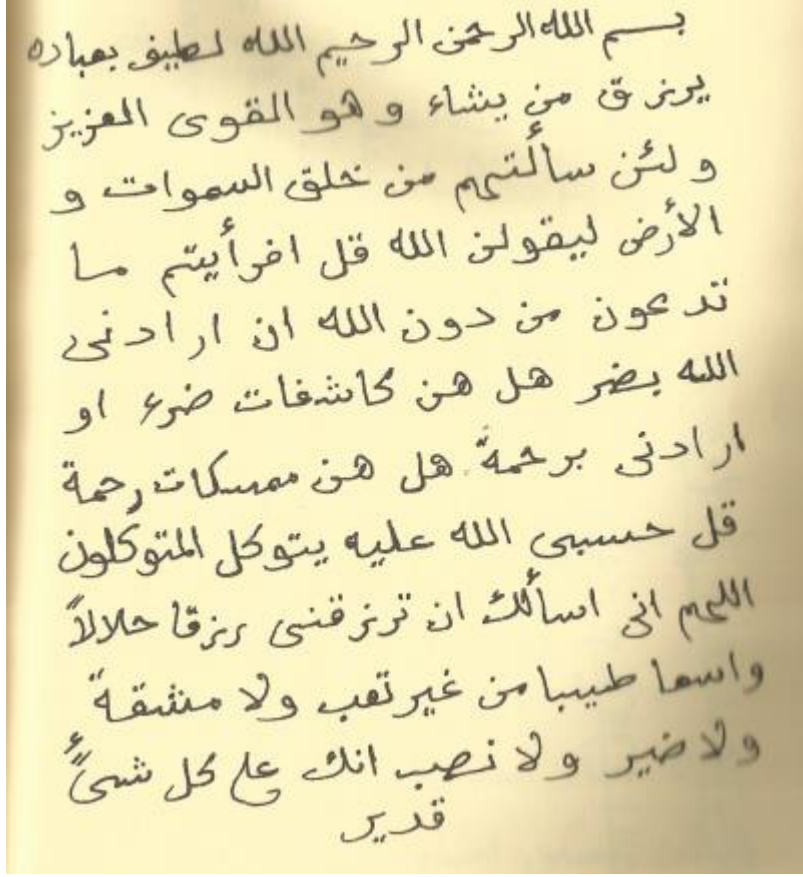 بسم الله الرحمن الرحيم الله لطيف بعباده
يرزق من يشاء و هو القوى العزيز
و لئن سألتهم من خلق السموات و
الأرض ليقولن الله قل افرأيتم ما
تدعون من دون الله ان ارادنى
الله بضر هل هن كاشفات ضره او
ارادنى برحمة هل هن ممسكات رحمة
قل حسبى الله عليه يتوكل المتوكلون
اللهم انى اسألك ان ترزقنى رزقا حلالاً
واسعا طيبا من غير تعب ولا مشقةً
ولا ضير ولا نصب انك على كل شىءٍ
قدير